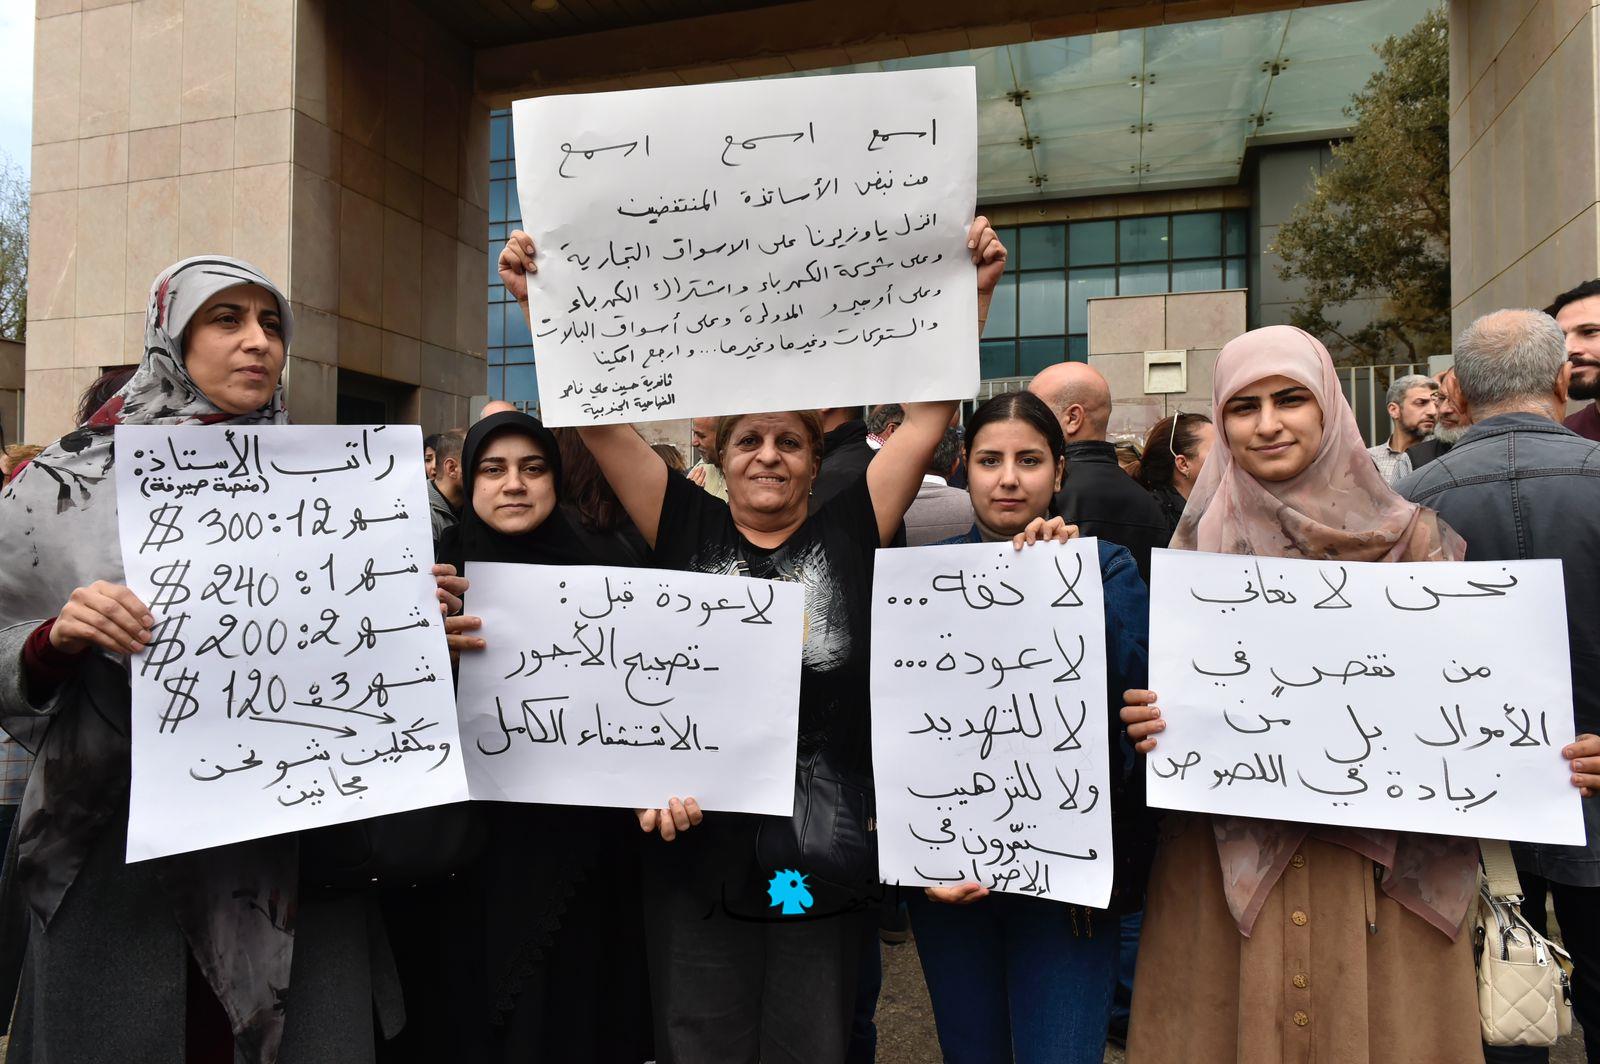 اسمع اسمع اسمع
من نبض الأساتذة المنتفضين
انزل يا وزيرنا على الاسواق التجارية
وعلى شركة الكهرباء واشتراك الكهرباء
وعلى أوجيرو المدولرة وعلى أسواق البالات
والستوكات وغيرها وغيرها... وارجع احكينا
ثانوية حسين علي ناصر
الضاحية الجنوبية
رَاتب الأستاذ:
(منصة صيرفة)
شهر 12: 300 $
شهر 1: 240 $
شهر 2: 200 $
شهر 3: 120 $
ومكفيين شو نحن
مجانين
لا عودة قبل:
- تصحيح الأجور
- الاستشفاء الكامل
لا ثقة...
لا عودة...
لا للتهديد
ولا للترهيب
مستمرّون في
الإضراب
نحن لا نعاني
من نقصٍ في
الأموال بل من
زيادة في اللصوص
النهار